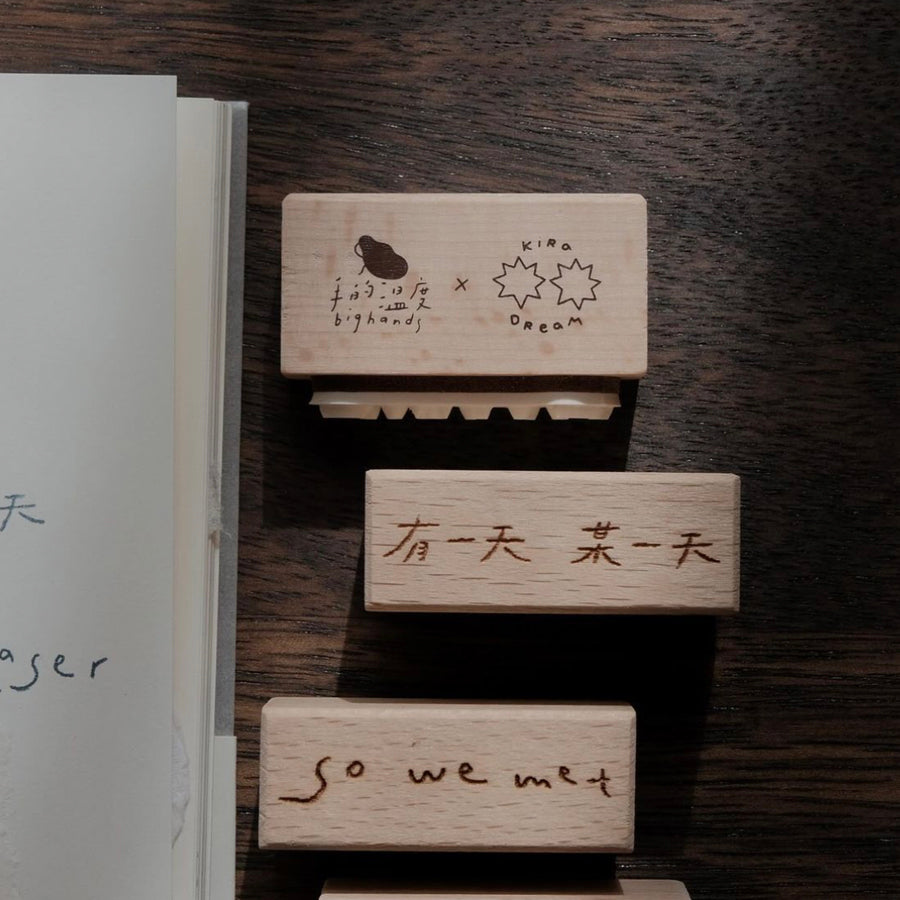 KIRa
手的溫度 × DReaM
bighands
有一天 某一天
天
ager
so we met